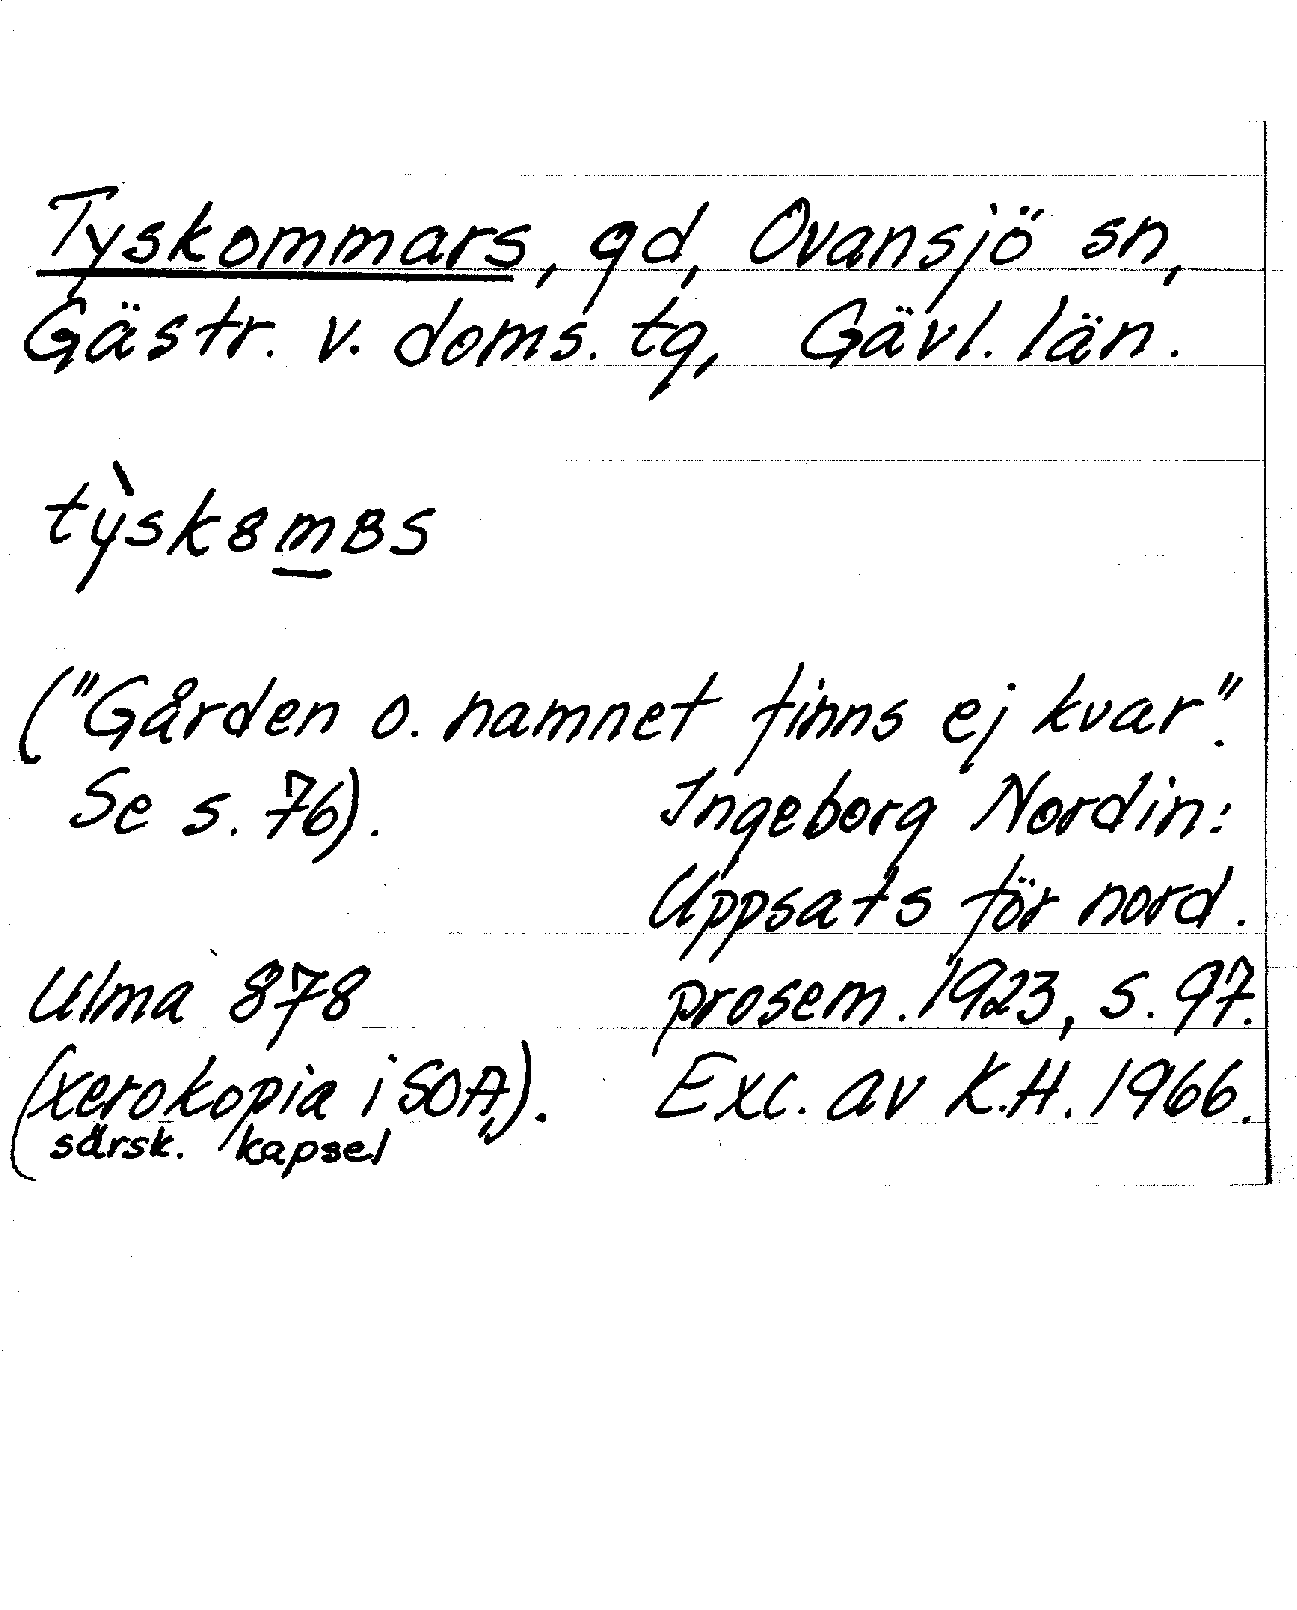 Tyskommars, gd, Ovansjö sn,
Gästr. v. doms. tg, Gävl. län.
tỳsk8mBS
("Gården o. namnet finns ej kvar".
Se s. 76).
Ingeborg Nordin:
Uppsats för nord.
prosem. 1923, s. 97.
Exc. av K.H. 1966.
Ulma 878
(xerokopia i SOA,).
(särsk. kapsel